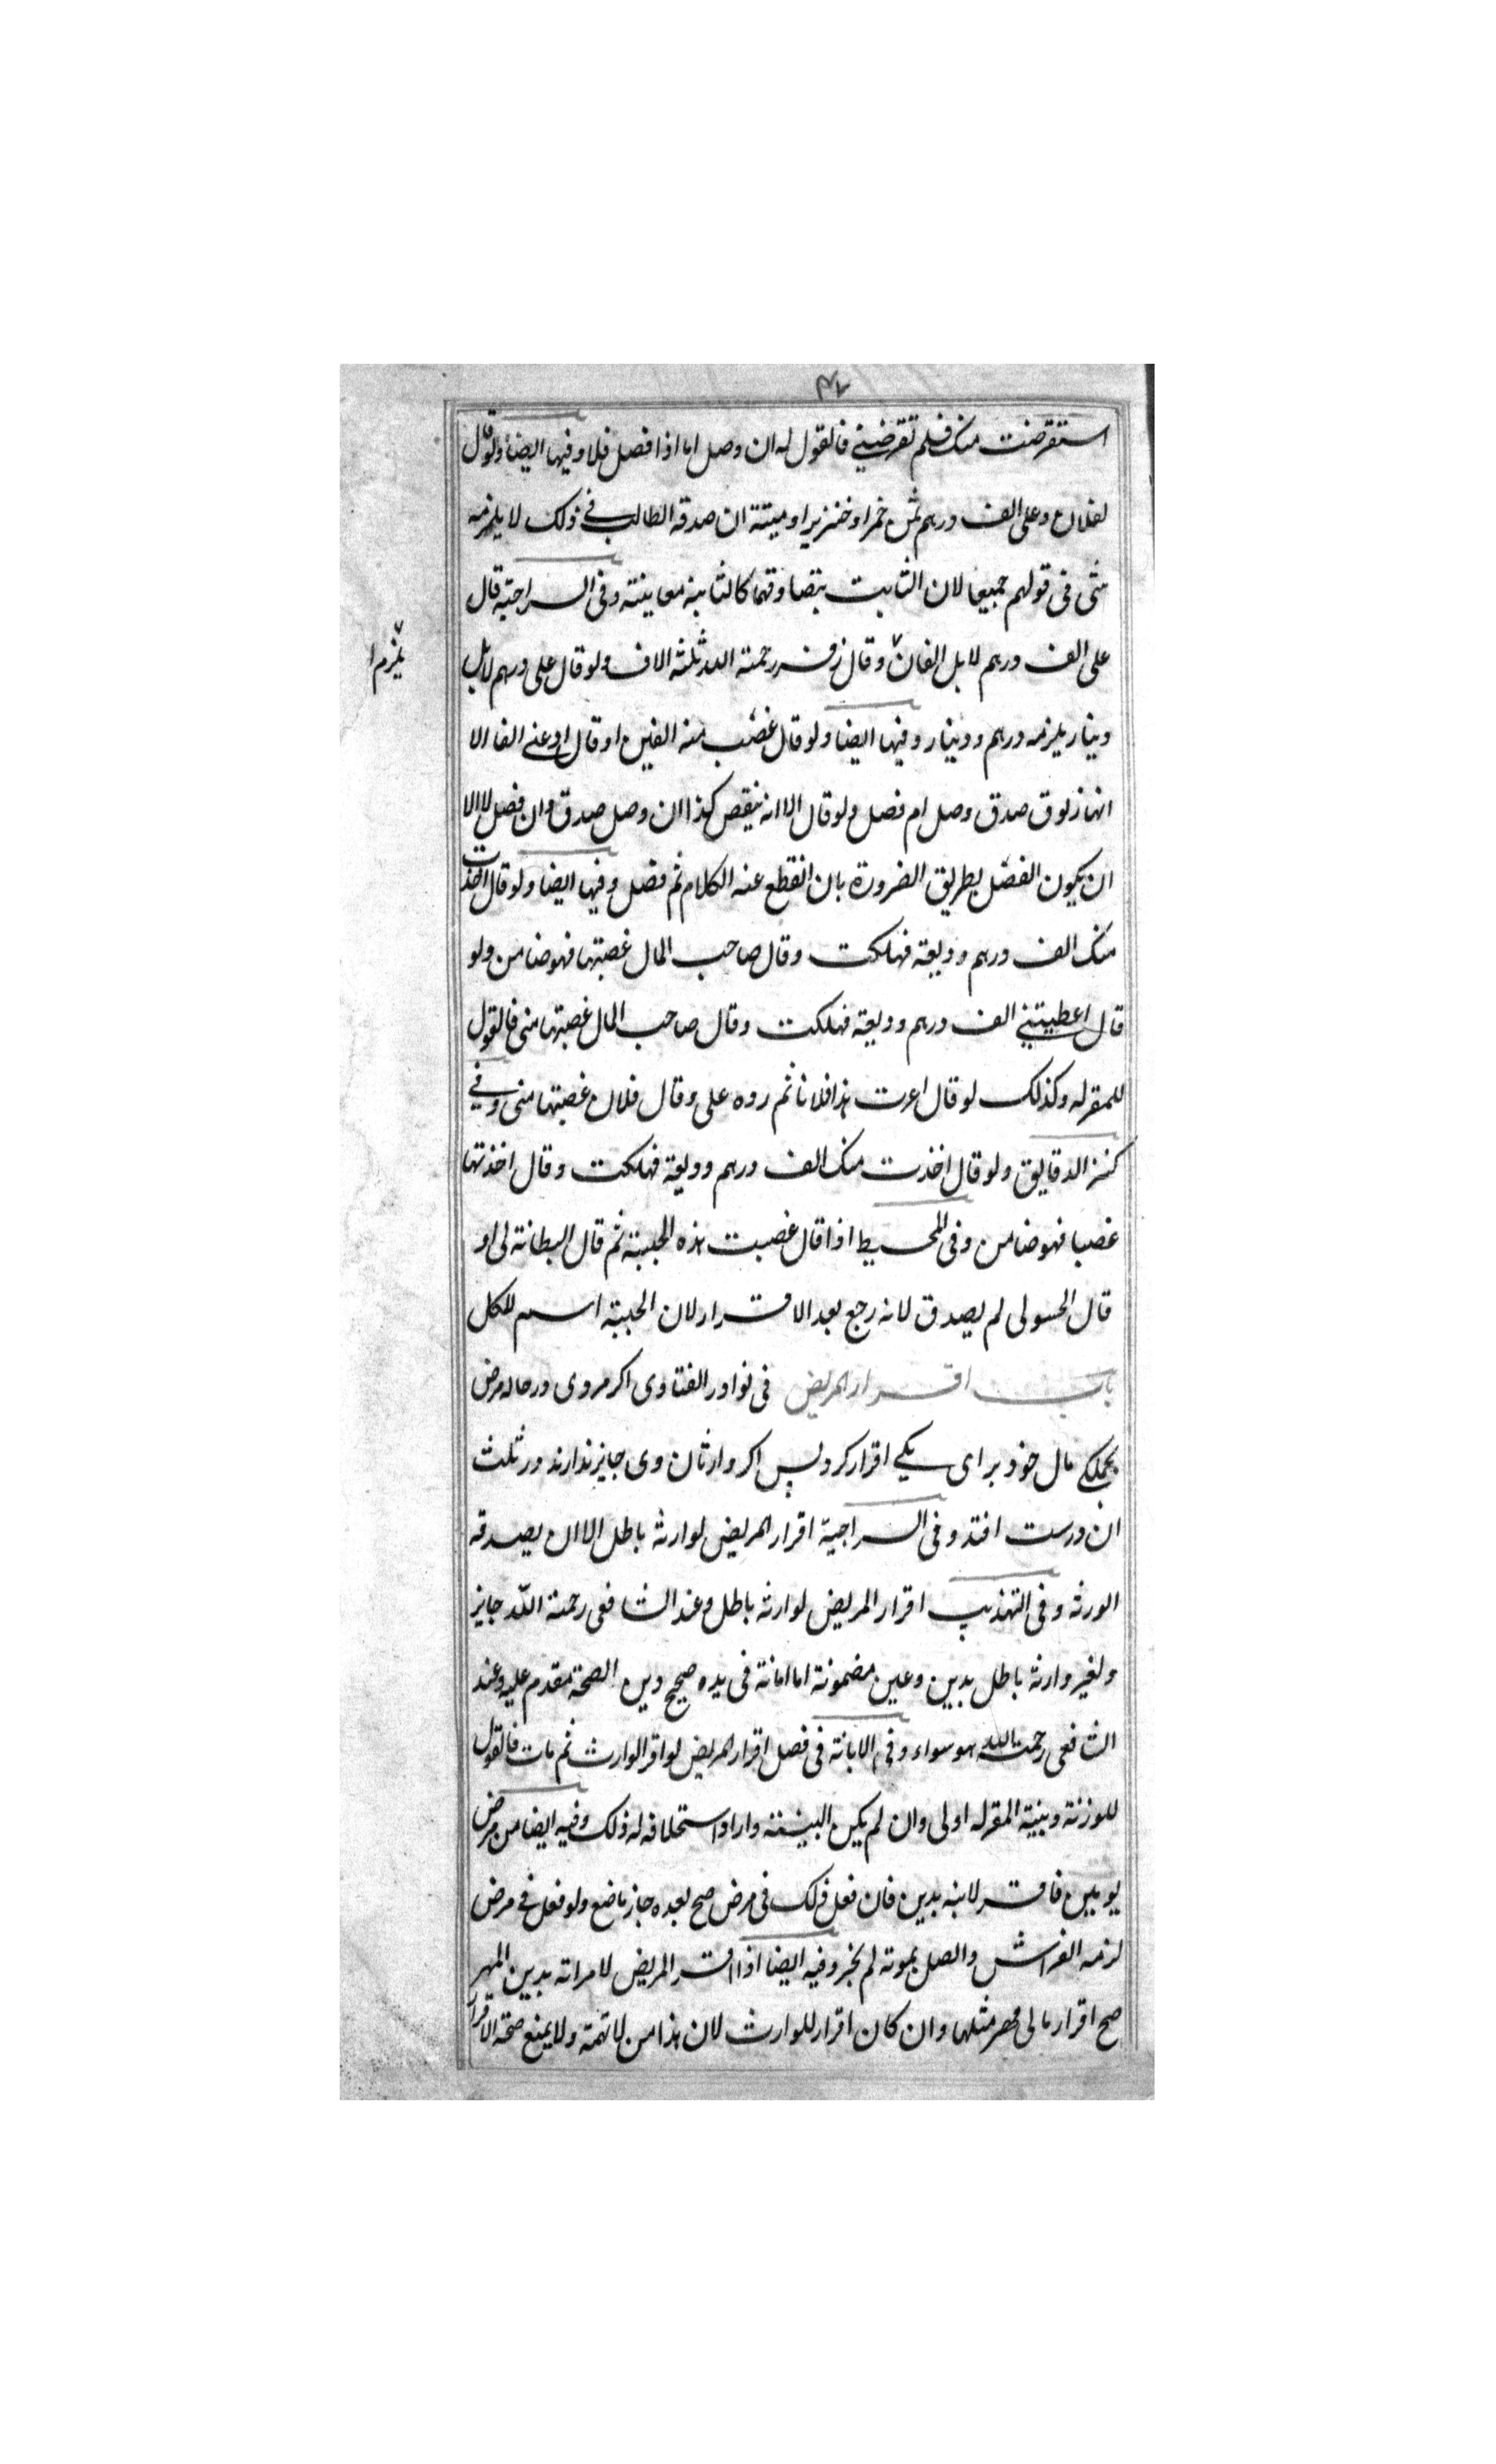 استقرضت منک فلم تقرضنی فالقول له ان وصل اما اذا فصل فلا وفیها ایضا ولو قال
لفلان وعلی الف درهم ثمن خمر او خنزیر او میتة ان صدقه الطالب فی ذلک لا یلزمه
شی فی قولهم جمیعا لان الثابت بتصادقهما کالثابته معاینته وفی السراجیة قال
علی الف درهم لا بل الفان وقال زفر رحمة الله ثلثه الاف ولو قال علی درهم لا بل
یلزم
دینار یلزمه درهم ودینار وفیها ایضا ولو قال غصبت منه الفین او قال اودعنی الفا الا
انها زیوف صدق وصل ام فصل ولو قال الا انه ینقص کذا ان وصل صدق وان فصل لا الا
ان یکون الفصل بطریق الضرورة بان انقطع عنه الکلام ثم فصل وفیها ایضا ولو قال اخذت
منک الف درهم ودیعة فهلکت وقال صاحب المال غصبتها فهو ضامن ولو
قال اعطیتنی الف درهم ودیعة فهلکت وقال صاحب المال غصبتها منی فالقول
للمقر له وکذلک لو قال اعرت هذا فلانا ثم رده علی وقال فلان غصبتها منی وفی
کنز الدقایق ولو قال اخذت منک الف درهم ودیعة فهلکت وقال اخذتها
غصبا فهو ضامن وفی المحیط اذا قال غصبت هذه الجبة ثم قال البطانة لی او
قال الحشو لی لم یصدق لانه رجع بعد الاقرار لان الجبة اسم للکل
باب اقرار المریض فی نوادر الفتاوی اکر مردی در حاله مرض
بجملکی مال خود برای یکی اقرار کرد پس اکر وارثان وی جایز ندارند در ثلث
ان درست افتد وفی السراجیة اقرار المریض لوارثه باطل الا ان یصدقه
الورثه وفی التهذیب اقرار المریض لوارثه باطل وعند الشافعی رحمة الله جایز
ولغیر وارثه باطل بدین وعین مضمونة اما امانة فی یده صحیح ودین الصحة مقدم علیه وعند
الشافعی رحمت الله هو سواء وفی الابانة فی فصل اقرار المریض لو اقر الوارث ثم مات فالقول
للورثة وبینة المقر له اولی وان لم یکن البینة واراد استحلافه له ذلک وفیه ایضا من مرض
یومین فاقر لابنه بدین فان فعل ذلک فی مرض صح بعده جاز ماضع ولو فعل فی مرض
لزمه الفراش واتصل بموته لم یجز وفیه ایضا اذا اقر المریض لامراته بدین المهر
صح اقراره الی مهر مثلها وان کان اقرار للوارث لان هذا من لا تهمة ولا یمنع صحة الاقرار